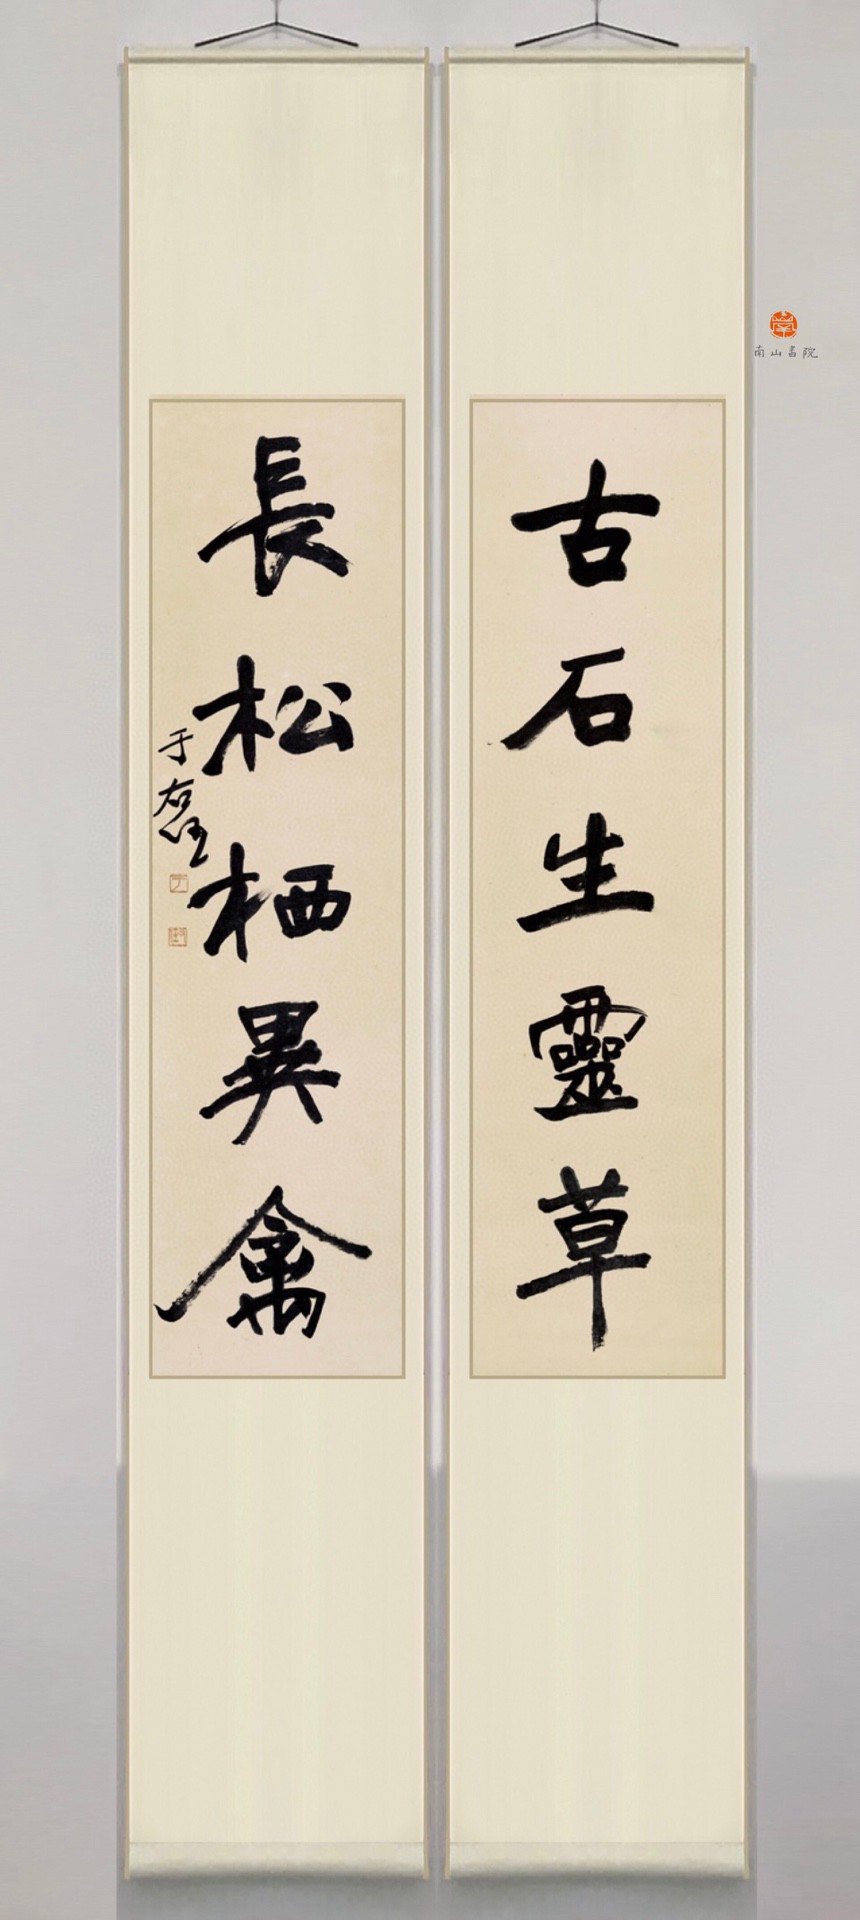 古石生靈草
長松栖異禽
于右任
南山書院